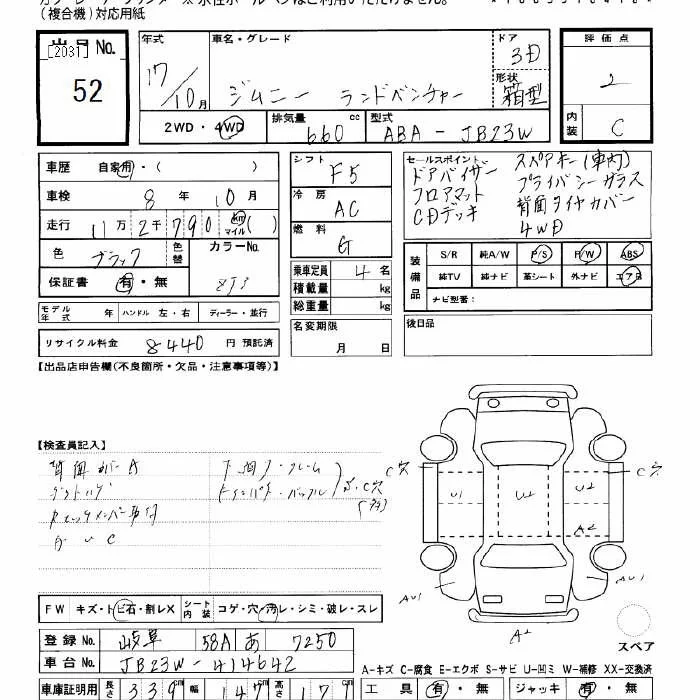 (複合機)対応用紙
出品No.
[2031]
52
年式
17/10月
車名・グレード
ジムニー ランドベンチャー
ドア
3D
形状
箱型
評価点
2
内装
C
2WD・4WD
排気量
660 cc
型式
ABA-JB23W
車歴 自家用・( )
車検 8年10月
走行 11万2千790 km マイル ( )
色 ブラック 色替
カラーNo.
ZJ3
保証書 有・無
シフト F5
冷房 AC
燃料 G
乗車定員 4名
積載量 kg
総重量 kg
名変期限
月 日
セールスポイント
ドアバイザー
フロアマット
CDデッキ
スペアキー(車内)
プライバシーガラス
背面タイヤカバー
4WD
装備品
S/R 純A/W P/S P/W ABS
純TV 純ナビ 革シート 外ナビ エアB
ナビ型番:
後日品
モデル年式 年 ハンドル 左・右 ディーラー・並行
リサイクル料金 8440 円 預託済
【出品店申告欄(不良箇所・欠品・注意事項等)】
【検査員記入】
背面カバーA
下廻り・フレーム
C穴
C穴
U1 U2 U2
A2
AU1
AU1
A2
FW キズ・トビ石・割レX シート内装 コゲ・穴・汚レ・シミ・破レ・スレ
スペア
登録No. 岐阜 58A あ 7250
車台No. JB23W-414642
A-キズ C-腐食 E-エクボ S-サビ U-凹ミ W-補修 XX-交換済
車庫証明用 長さ 339cm 幅 147cm 高さ 171cm
工具 有・無 ジャッキ 有・無